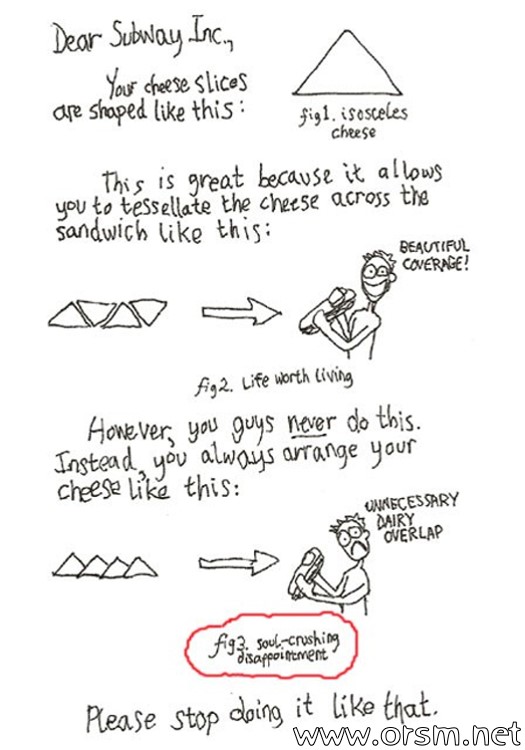 Dear Subway Inc.,
Your cheese slices
are shaped like this:
fig1. isosceles
cheese
This is great because it allows
you to tessellate the cheese across the
sandwich like this:
BEAUTIFUL
COVERAGE!
fig2. Life worth living
However, you guys never do this.
Instead, you always arrange your
cheese like this:
UNNECESSARY
DAIRY
OVERLAP
fig3. soul-crushing
disappointment
Please stop doing it like that.
www.orsm.net